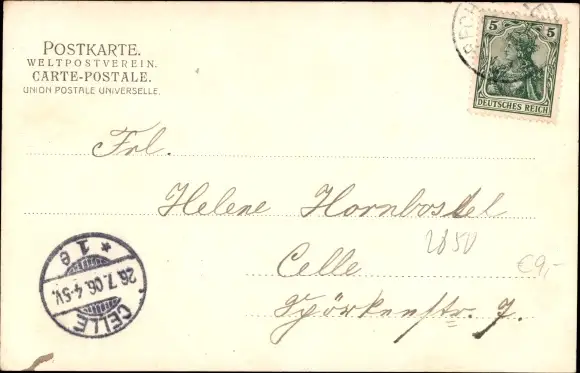 POSTKARTE.
WELTPOSTVEREIN.
CARTE-POSTALE.
UNION POSTALE UNIVERSELLE.
5 5
DEUTSCHES REICH
Frl.
Helene Hornbostel
2850
Celle
€9,-
Spörkenstr. 7.
* 1 e
26.7.06.4-5V.
CELLE